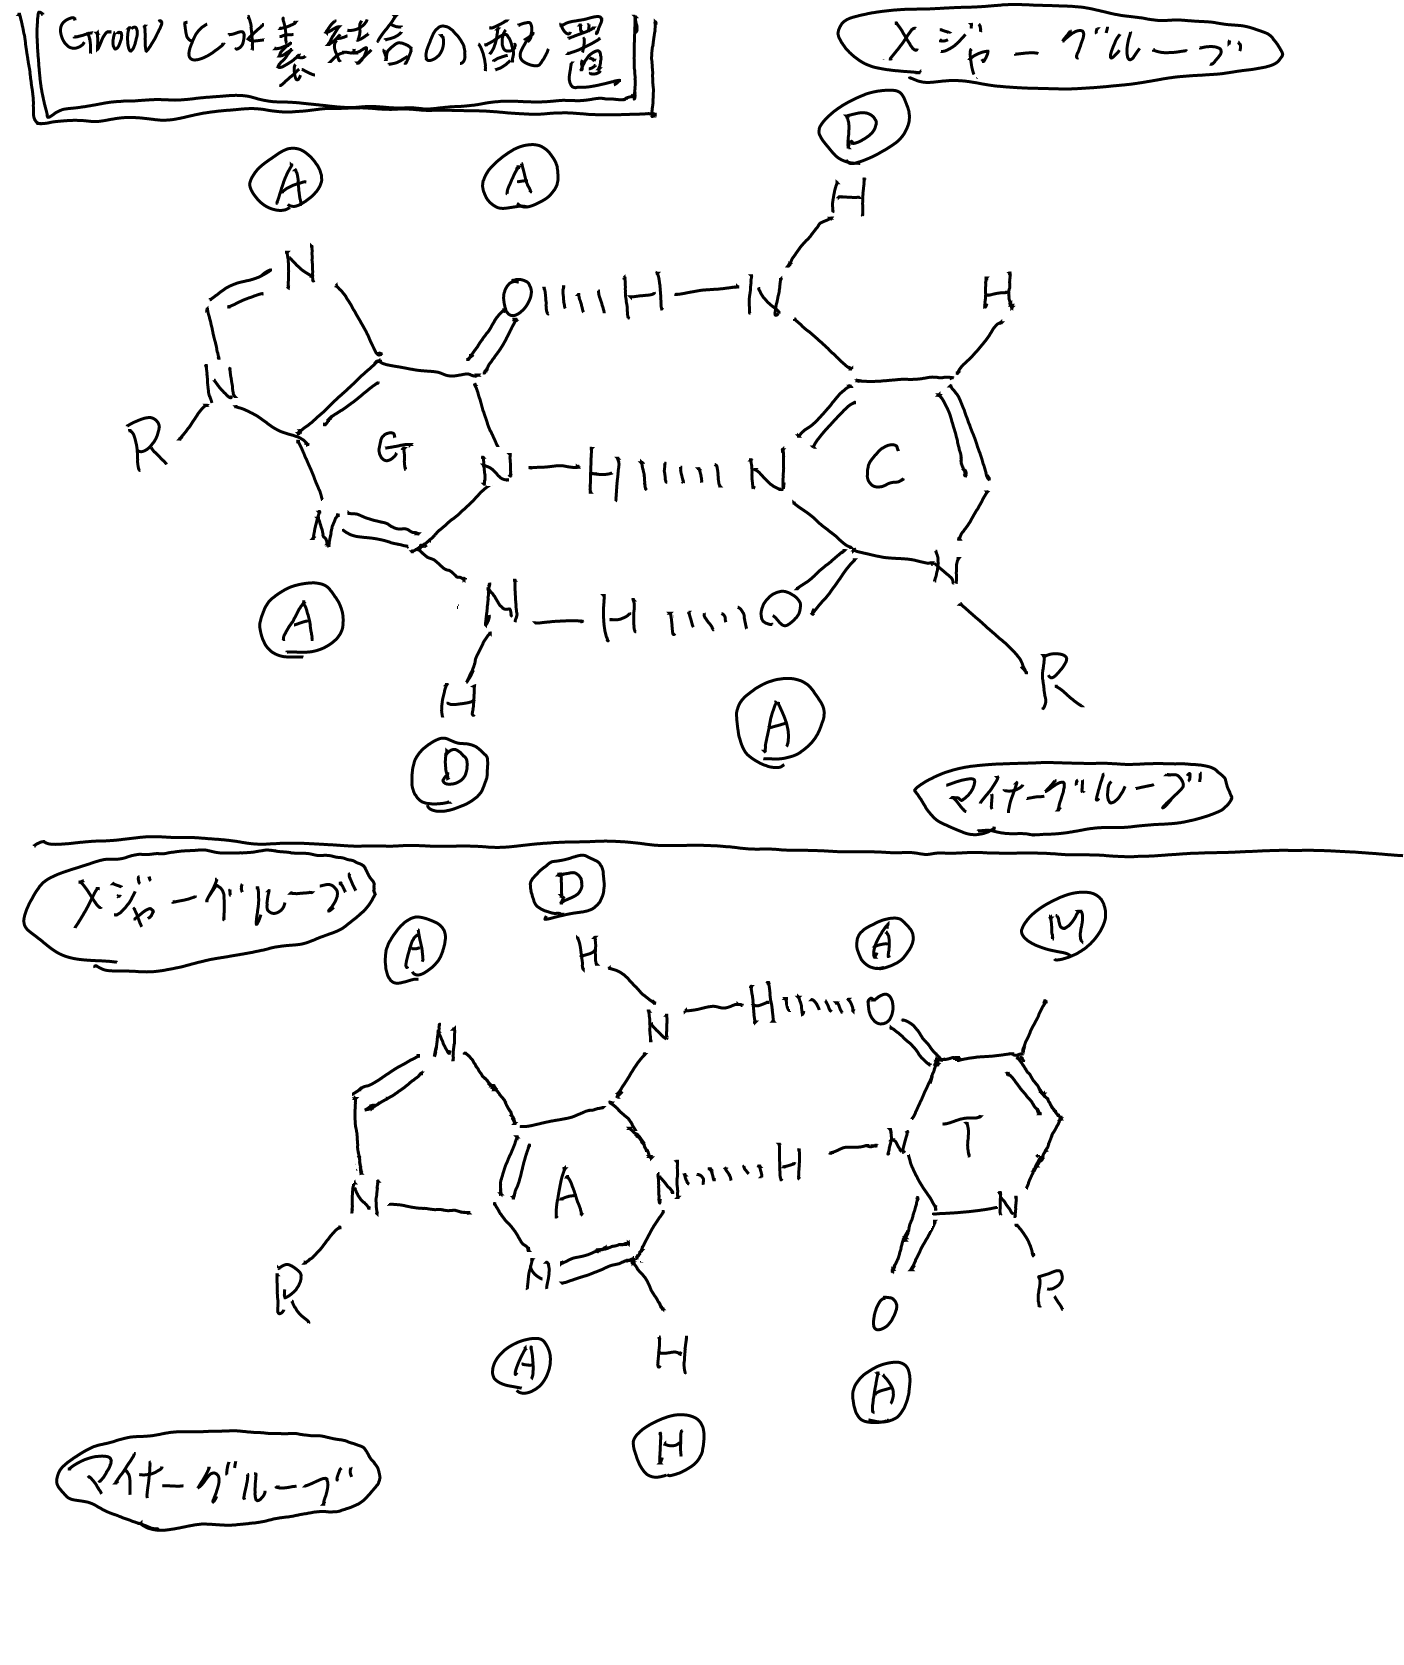 Groovと水素結合の配置
メジャーグルーブ
D
A A
H
N O H N H
N
R G N H N C
N N
A N H O
R
H A
D
マイナーグルーブ
メジャーグルーブ
D M
A H A
N N H O
A N H N T
N N
R N R
H O
A A
H
マイナーグルーブ